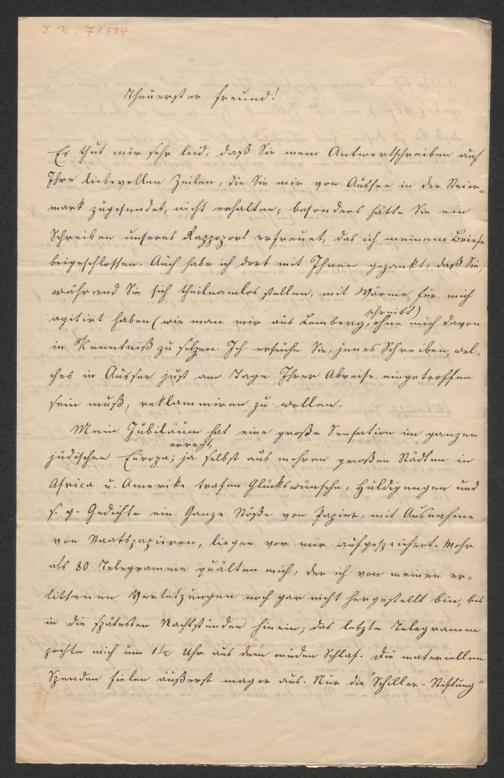 J. N. 73504
Theuerster Freund!
Es thut mir sehr leid, daß Sie mein Antwortschreiben auf
Ihre liebevollen Zeilen, die Sie mir von Aussee in der Steier-
mark zugesendet, nicht erhalten; besonders hätte Sie ein
Schreiben unseres Rappoport erfreuet, das ich meinem Briefe
beigeschlossen. Auch habe ich dort mit Ihnen gezankt, daß Sie,
während Sie sich theilnamlos stellen, mit Wärme für mich
schreibt)
agitirt haben (wie man mir aus Lemberg, ohne mich davon
in Kenntniß zu setzen. Ich ersuche Sie, jenes Schreiben, wel-
ches in Aussee just am Tage Ihrer Abreise eingetroffen
sein muß, reklammiren zu wollen.
Mein Jubiläum hat eine große Sensation im ganzen
erregt,
jüdischen Europa; ja selbst aus mehren großen Städten in
Africa u. Amerika trafen Glückswünsche, Huldigungen und
s. g. Gedichte ein. Ganze Stöße von Papier, mit Ausnahme
von Staatspapieren, liegen vor mir aufgespeichert. Mehr
als 80 Telegramme quälten mich, der ich von meinen er-
littenen Verletzungen noch gar nicht hergestellt bin, bis
in die spätesten Nachtstunden hinein; das letzte Telegramm
pochte mich um 1½ Uhr aus dem müden Schlaf. Die materiellen
Spenden fielen äußerst mager aus. Nur die "Schiller-Stiftung"